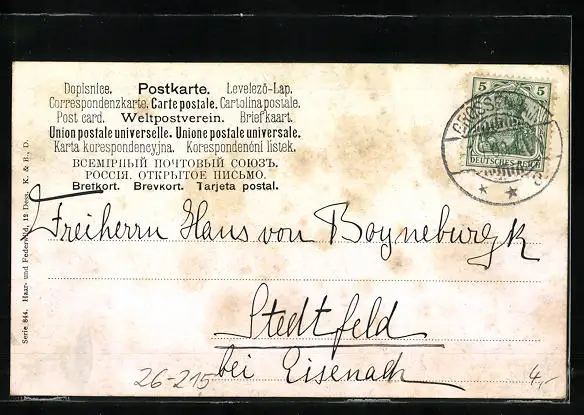 Dopisnice. Postkarte. Levelező-Lap.
Correspondenzkarte. Carte postale. Cartolina postale.
Post card. Weltpostverein. Briefkaart.
Union postale universelle. Unione postale universale.
Karta korespondencyjna. Korespondenční listek.
ВСЕМІРНЫЙ ПОЧТОВЫЙ СОЮЗЪ.
РОССІЯ. ОТКРЫТОЕ ПИСЬМО.
Brefkort. Brevkort. Tarjeta postal.
5 5
DEUTSCHES REICH
Freiherrn Hans von Boyneburgk
Stedtfeld
bei Eisenach
26-215
4,-
Serie 844. Haar- und Federbild, 12 Dess. K. & B., D.